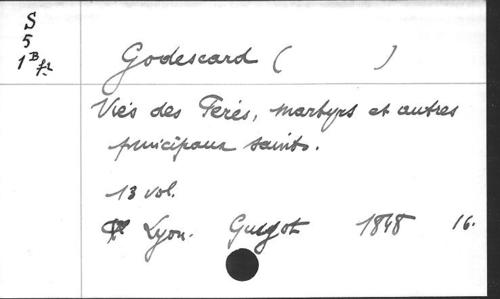 S
5
1 B fr
Godescard ( )
Viés des Perés, martyrs et autres
principaux saints.
13 vol.
Lyon. Guyot 1848 16.